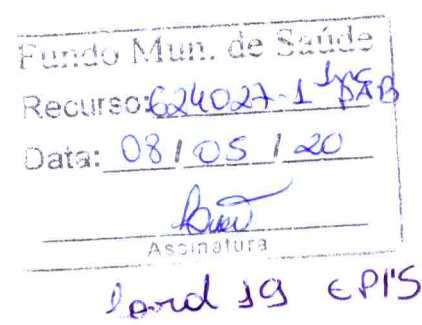 Fundo Mun. de Saúde
Recurso: 624027-1 Inc PAB
Data: 08/05/20
Assinatura
19 EPI'S